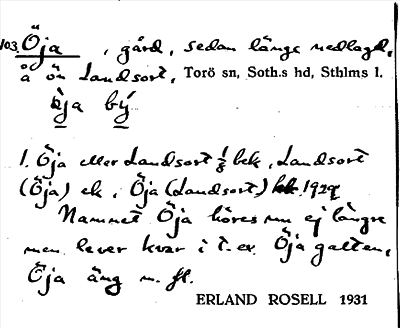 103. Öja, gård, sedan länge nedlagd,
å ön Landsort, Torö sn, Soth.s hd, Sthlms l.
òja bý
1. Öja eller Landsort 1/8 bek, Landsort
(Öja) ek, Öja (Landsort) 1929.
Namnet Öja höres nu ej längre
men lever kvar i t. ex. Öja gatten,
Öja äng m. fl.
ERLAND ROSELL 1931